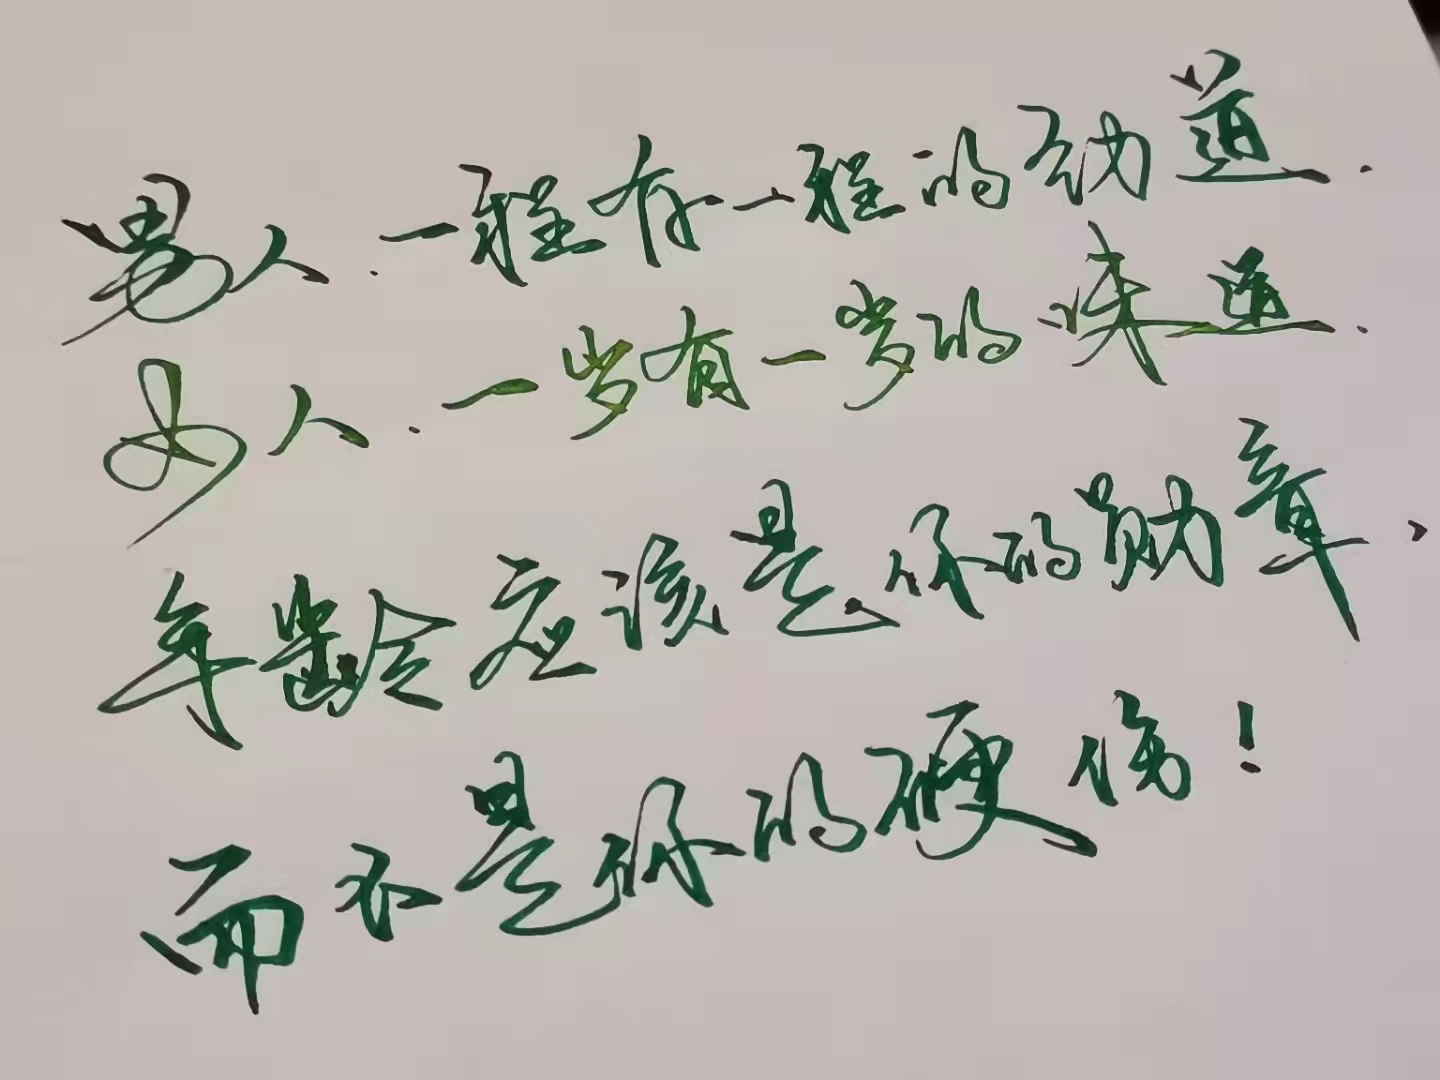 男人.一程有一程的劲道.
女人.一岁有一岁的味道.
年龄应该是你的勋章、
而不是你的硬伤!